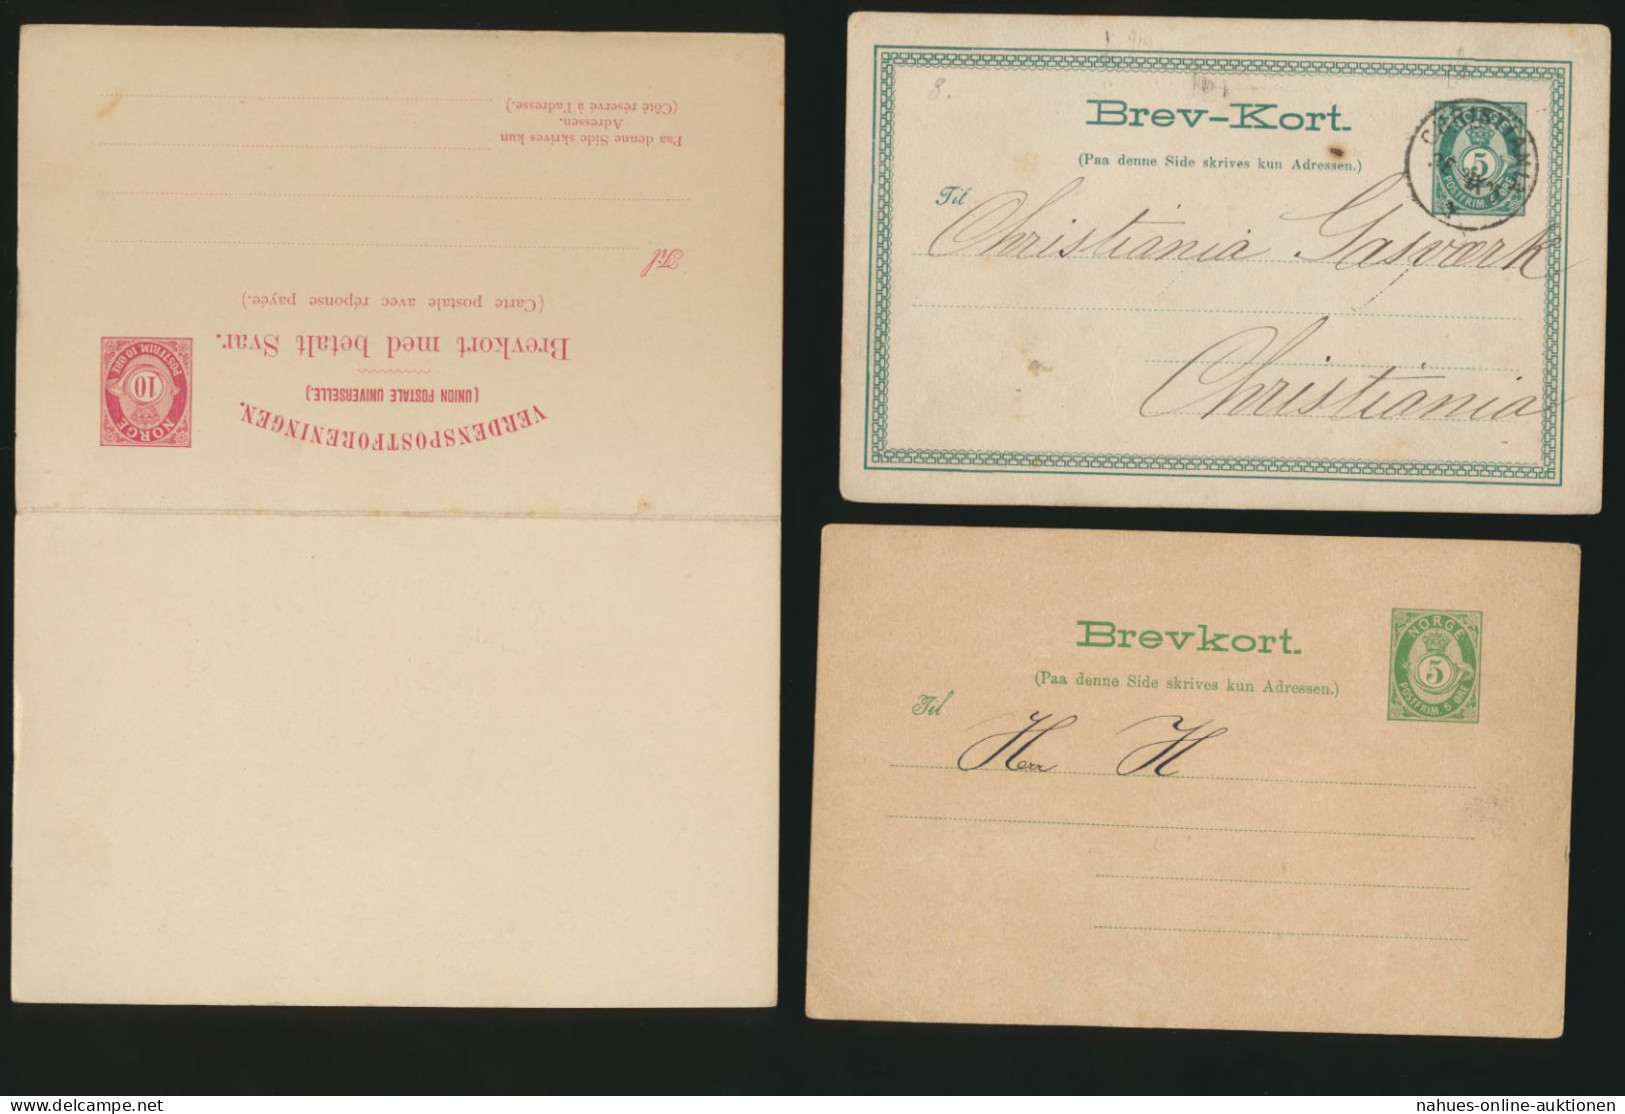 VERDENSPOSTFORENINGEN.
(UNION POSTALE UNIVERSELLE.)
NORGE
10
POSTFRIM 10 ØRE
Brevkort med betalt Svar.
(Carte postale avec réponse payée.)
Til
Paa denne Side skrives kun
Adressen.
(Côté réservé à l'adresse.)
8.
Brev-Kort.
(Paa denne Side skrives kun Adressen.)
CHRISTIANIA
5
POSTFRIM 5 ØRE
Til Christiania Gasværk
Christiania
Brevkort.
(Paa denne Side skrives kun Adressen.)
NORGE
5
POSTFRIM. 5 ØRE
Til
Herr H
nahues-online-auktionen